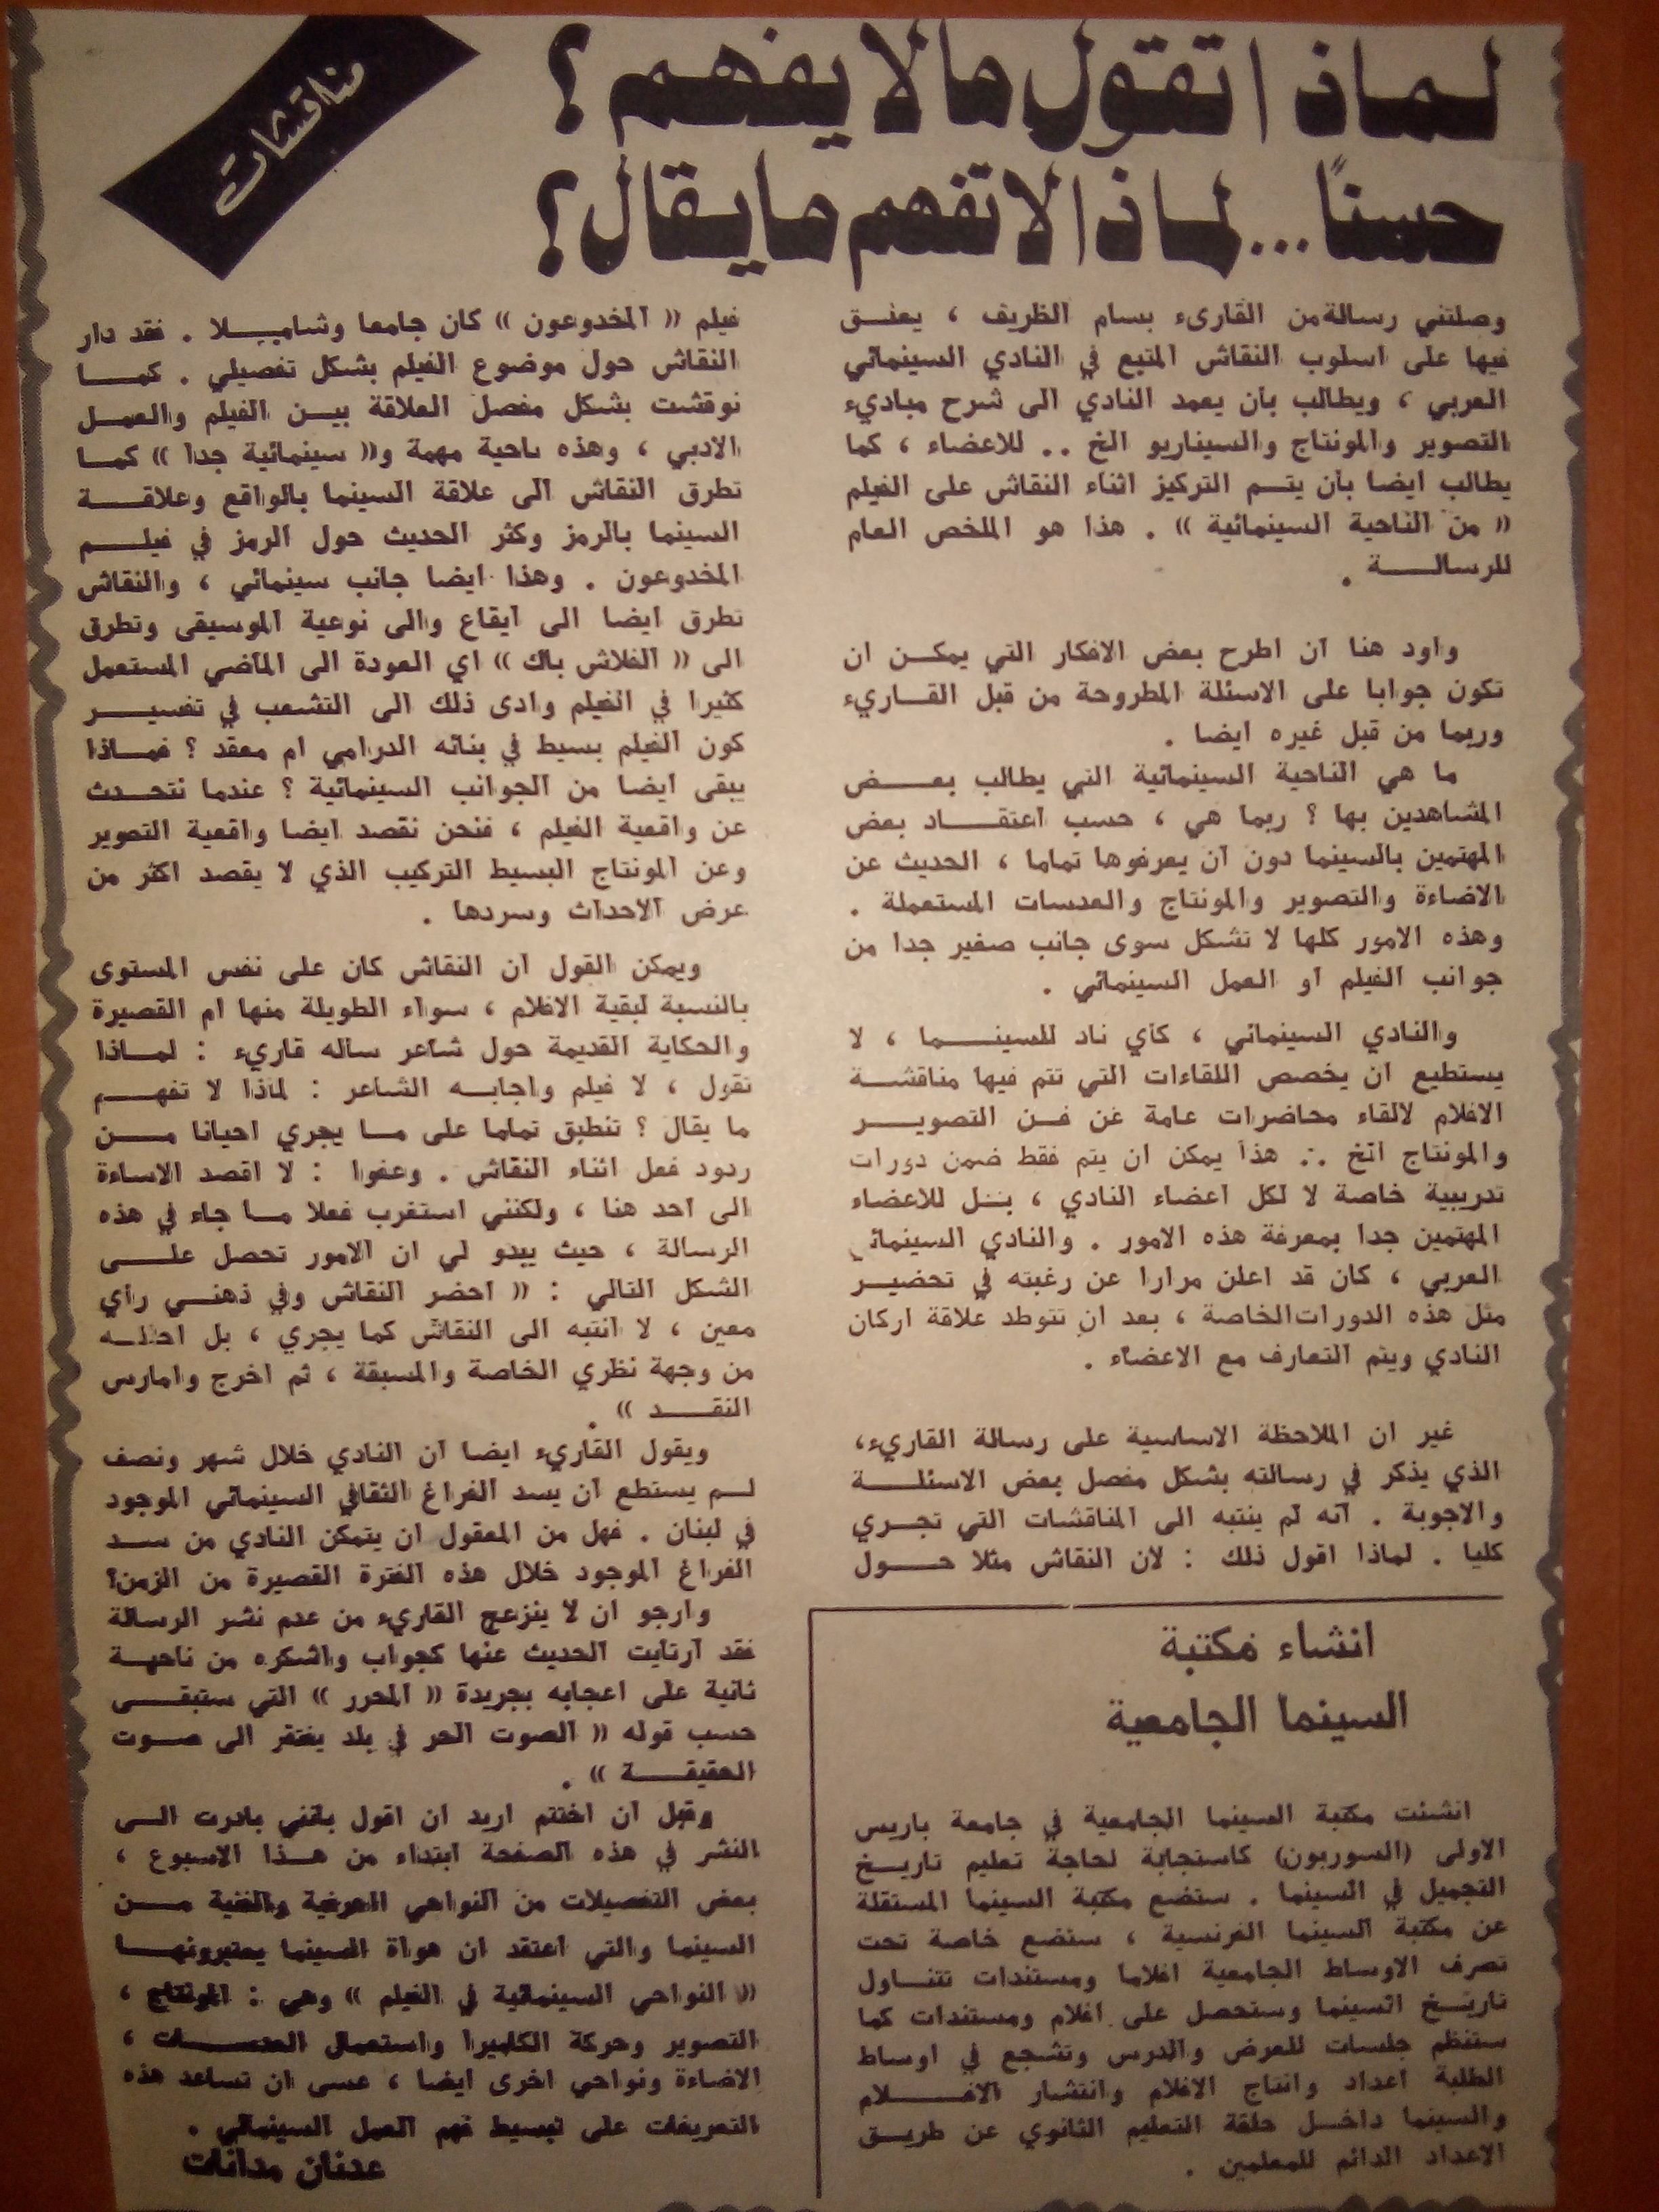 مناقشات
لماذا تقول ما لا يفهم ؟
حسنًا ... لماذا لا تفهم ما يقال ؟
وصلتني رسالة من القارىء بسام الظريف ، يعلق
فيها على اسلوب النقاش المتبع في النادي السينمائي
العربي ، ويطالب بأن يعمد النادي الى شرح مباديء
التصوير والمونتاج والسيناريو الخ .. للاعضاء ، كما
يطالب ايضا بأن يتم التركيز اثناء النقاش على الفيلم
« من الناحية السينمائية » . هذا هو الملخص العام
للرسالة .
واود هنا أن اطرح بعض الافكار التي يمكن ان
تكون جوابا على الاسئلة المطروحة من قبل القاريء
وربما من قبل غيره ايضا .
ما هي الناحية السينمائية التي يطالب بعض
المشاهدين بها ؟ ربما هي ، حسب اعتقاد بعض
المهتمين بالسينما دون أن يعرفوها تماما ، الحديث عن
الاضاءة والتصوير والمونتاج والعدسات المستعملة .
وهذه الامور كلها لا تشكل سوى جانب صغير جدا من
جوانب الفيلم او العمل السينمائي .
والنادي السينمائي ، كأي ناد للسينما ، لا
يستطيع ان يخصص اللقاءات التي تتم فيها مناقشة
الافلام لالقاء محاضرات عامة عن فن التصوير
والمونتاج الخ .. هذا يمكن ان يتم فقط ضمن دورات
تدريبية خاصة لا لكل اعضاء النادي ، بل للاعضاء
المهتمين جدا بمعرفة هذه الامور . والنادي السينمائي
العربي ، كان قد اعلن مرارا عن رغبته في تحضير
مثل هذه الدورات الخاصة ، بعد ان تتوطد علاقة اركان
النادي ويتم التعارف مع الاعضاء .
غير ان الملاحظة الاساسية على رسالة القاريء،
الذي يذكر في رسالته بشكل مفصل بعض الاسئلة
والاجوبة . أنه لم ينتبه الى المناقشات التي تجري
كليا . لماذا اقول ذلك : لان النقاش مثلا حول
فيلم « المخدوعون » كان جامعا وشاملا . فقد دار
النقاش حول موضوع الفيلم بشكل تفصيلي . كما
نوقشت بشكل مفصل العلاقة بين الفيلم والعمل
الادبي ، وهذه ناحية مهمة و« سينمائية جدا » كما
تطرق النقاش الى علاقة السينما بالواقع وعلاقة
السينما بالرمز وكثر الحديث حول الرمز في فيلم
المخدوعون . وهذا ايضا جانب سينمائي ، والنقاش
تطرق ايضا الى ايقاع والى نوعية الموسيقى وتطرق
الى « الفلاش باك » اي العودة الى الماضي المستعمل
كثيرا في الفيلم وادى ذلك الى التشعب في تفسير
كون الفيلم بسيط في بنائه الدرامي ام معقد ؟ فماذا
يبقى ايضا من الجوانب السينمائية ؟ عندما نتحدث
عن واقعية الفيلم ، فنحن نقصد ايضا واقعية التصوير
وعن المونتاج البسيط التركيب الذي لا يقصد اكثر من
عرض الاحداث وسردها .
ويمكن القول أن النقاش كان على نفس المستوى
بالنسبة لبقية الافلام ، سواء الطويلة منها ام القصيرة
والحكاية القديمة حول شاعر سأله قاريء : لماذا
تقول ، لا فيلم واجابه الشاعر : لماذا لا تفهم
ما يقال ؟ تنطبق تماما على ما يجري احيانا من
ردود فعل اثناء النقاش . وعفوا : لا اقصد الاساءة
الى أحد هنا ، ولكنني استغرب فعلا ما جاء في هذه
الرسالة ، حيث يبدو لي ان الامور تحصل على
الشكل التالي : « احضر النقاش وفي ذهني رأي
معين ، لا انتبه الى النقاش كما يجري ، بل احلله
من وجهة نظري الخاصة والمسبقة ، ثم اخرج وامارس
النقد » .
ويقول القاريء ايضا أن النادي خلال شهر ونصف
لم يستطع أن يسد الفراغ الثقافي السينمائي الموجود
في لبنان . فهل من المعقول ان يتمكن النادي من سد
الفراغ الموجود خلال هذه الفترة القصيرة من الزمن؟
وارجو ان لا ينزعج القاريء من عدم نشر الرسالة
فقد ارتأيت الحديث عنها كجواب واشكره من ناحية
ثانية على اعجابه بجريدة « المحرر » التي ستبقى
حسب قوله « الصوت الحر في بلد يفتقر الى صوت
الحقيقة » .
وقبل أن اختتم اريد ان اقول بأنني بادرت الى
النشر في هذه الصفحة ابتداء من هذا الاسبوع ،
بعض التفصيلات من النواحي الحرفية والفنية من
السينما والتي اعتقد ان هواة السينما يعتبرونها
« النواحي السينمائية في الفيلم » وهي : المونتاج ،
التصوير وحركة الكاميرا واستعمال العدسات ،
الاضاءة ونواحي اخرى ايضا ، عسى ان تساعد هذه
التعريفات على تبسيط فهم العمل السينمائي .
عدنان مدانات
انشاء مكتبة
السينما الجامعية
انشئت مكتبة السينما الجامعية في جامعة باريس
الاولى (السوربون) كاستجابة لحاجة تعليم تاريخ
التجميل في السينما . ستضع مكتبة السينما المستقلة
عن مكتبة السينما الفرنسية ، ستضع خاصة تحت
تصرف الاوساط الجامعية افلاما ومستندات تتناول
تاريخ السينما وستحصل على افلام ومستندات كما
ستنظم جلسات للعرض والدرس وتشجع في اوساط
الطلبة اعداد وانتاج الافلام وانتشار الافلام
والسينما داخل حلقة التعليم الثانوي عن طريق
الاعداد الدائم للمعلمين .